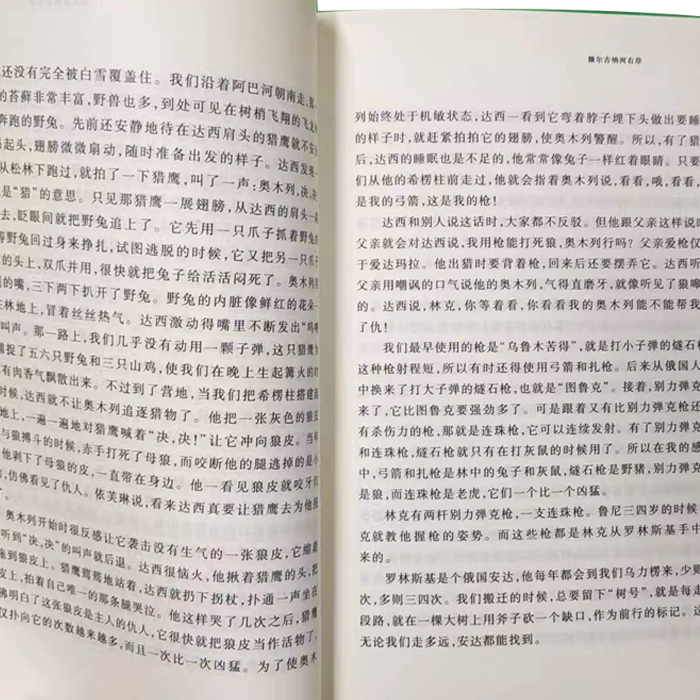 还没有完全被白雪覆盖住。我们沿着阿巴河朝南走,那
的苔藓非常丰富,野兽也多,到处可见在树梢飞翔的飞龙
奔跑的野兔。先前还安静地待在达西肩头的猎鹰就不安
起头,翅膀微微扇动,随时准备出发的样子。达西发现
从松林下跑过,就拍了一下猎鹰,叫了一声:奥木列,决,决
是“猎”的意思。只见那猎鹰一展翅膀,从达西的肩头一
去,眨眼间就把野兔追上了。它先用一只爪子抓着野兔
等野兔回过身来挣扎,试图逃脱的时候,它又把另一只
的头上,双爪并用,很快就把兔子给活活闷死了。奥木列
的嘴,三下两下扒开了野兔。野兔的内脏像鲜红的花朵一
在林地上,冒着丝丝热气。达西激动得嘴里不断发出“呜
叫声。那一路上,我们几乎没有动用一颗子弹,这只猎鹰
捕捉了五六只野兔和三只山鸡,使我们在晚上生起篝火的时
有肉香气飘散出来。不过到了营地,当我们把希楞柱搭建起
时候,达西就不让奥木列追逐猎物了。他把一张灰色的狼皮
地上,一遍一遍地对猎鹰喊着“决,决!”让它冲向狼皮。当年
与狼搏斗的时候,赤手打死了母狼,而咬断他的腿逃掉的是小
他剥下了母狼的皮,一直带在身边。他一看见狼皮就咬牙
,仿佛看见了仇人。依芙琳说,看来达西真要让猎鹰去为他报
奥木列开始时很反感让它袭击没有生气的一张狼皮,它缩着
听到“决,决”的叫声就后退。达西很恼火,他揪着猎鹰的头,把
拖到狼皮上。猎鹰蔫蔫地站着,达西就扔下拐杖,扑通一声坐在
皮上,拍着自己唯一的那条腿哭泣。他这样哭了几次之后,猎鹰
佛明白了这张狼皮是主人的仇人,它很快就把狼皮当作活物了,
仅扑向它的次数越来越多,而且一次比一次凶猛。为了使奥木
额尔古纳河右岸
列始终处于机敏状态,达西一看到它弯着脖子埋下头做出要睡
的样子时,就赶紧拍拍它的翅膀,使奥木列警醒。所以,有了猎
后,达西的睡眠也是不足的,他常常像兔子一样红着眼睛。只要
们从他的希楞柱前走过,他就会指着奥木列说,看看,哦,看看,
是我的弓箭,这是我的枪!
达西和别人说这话时,大家都不反驳。但他跟父亲这样说时
父亲就会对达西说,我用枪能打死狼,奥木列行吗?父亲爱枪仅
于爱达玛拉。他出猎时要背着枪,回来后还要摆弄它。达西听
父亲用嘲讽的口气说他的奥木列,气得直磨牙,就像听见了狼嗥
的。达西说,林克,你等着看,你看看我的奥木列能不能帮我
了仇!
我们最早使用的枪是“乌鲁木苦得”,就是打小子弹的燧石枪
这种枪射程短,所以有时还得使用弓箭和扎枪。后来从俄国人
中换来了打大子弹的燧石枪,也就是“图鲁克”。接着,别力弹克
来了,它比图鲁克要强劲多了。可是跟着又有比别力弹克枪还
有杀伤力的枪,那就是连珠枪,它可以连续发射。有了别力弹克
和连珠枪,燧石枪就只有在打灰鼠的时候用了。所以在我的感
中,弓箭和扎枪是林中的兔子和灰鼠,燧石枪是野猪,别力弹克
是狼,而连珠枪是老虎,它们一个比一个凶猛。
林克有两杆别力弹克枪,一支连珠枪。鲁尼三四岁的时候
克就教他握枪的姿势。而这些枪都是林克从罗林斯基手中
来的。
罗林斯基是个俄国安达,他每年都会到我们乌力楞来,少则
次,多则三四次。我们搬迁的时候,总要留下“树号”,就是每走
段路,就在一棵大树上用斧子砍一个缺口,作为前行的标记。这
无论我们走多远,安达都能找到。